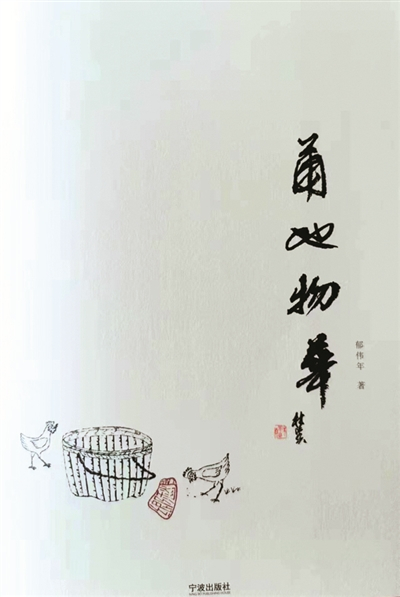 甬地物华
郁伟年 著
宁波出版社